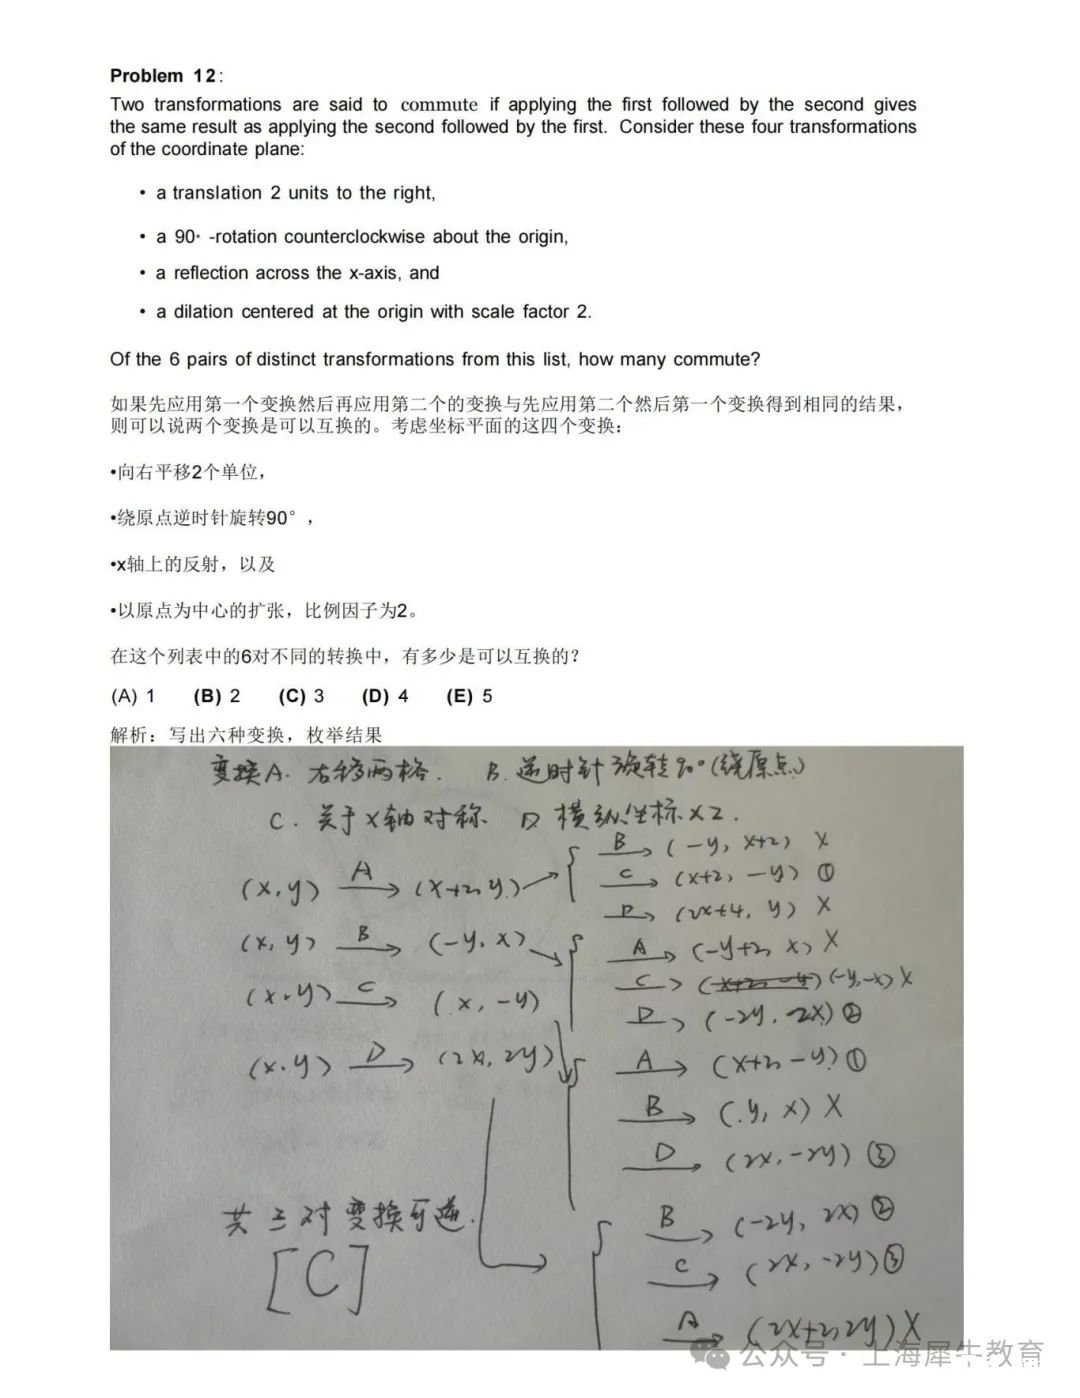 Problem 12:
Two transformations are said to commute if applying the first followed by the second gives
the same result as applying the second followed by the first. Consider these four transformations
of the coordinate plane:
• a translation 2 units to the right,
• a 90° -rotation counterclockwise about the origin,
• a reflection across the x-axis, and
• a dilation centered at the origin with scale factor 2.
Of the 6 pairs of distinct transformations from this list, how many commute?
如果先应用第一个变换然后再应用第二个的变换与先应用第二个然后第一个变换得到相同的结果，
则可以说两个变换是可以互换的。考虑坐标平面的这四个变换：
•向右平移2个单位，
•绕原点逆时针旋转90°，
•x轴上的反射，以及
•以原点为中心的扩张，比例因子为2。
在这个列表中的6对不同的转换中，有多少是可以互换的？
(A) 1 (B) 2 (C) 3 (D) 4 (E) 5
解析：写出六种变换，枚举结果
变换A. 右移两格. B. 逆时针旋转90°(绕原点)
C. 关于X轴对称 D 横纵坐标×2.
(x,y) A→ (x+2,y)
B→ (-y, x+2) X
C→ (x+2, -y) ①
D→ (2x+4, y) X
(x,y) B→ (-y,x)
A→ (-y+2, x) X
C→ (-y,-x) X
D→ (-2y, 2x) ②
(x,y) C→ (x,-y)
A→ (x+2, -y) ①
B→ (y, x) X
D→ (2x,-2y) ③
(x,y) D→ (2x,2y)
B→ (-2y, 2x) ②
C→ (2x,-2y) ③
A→ (2x+2,2y) X
共三对变换可逆.
[C]
公众号·上海犀牛教育